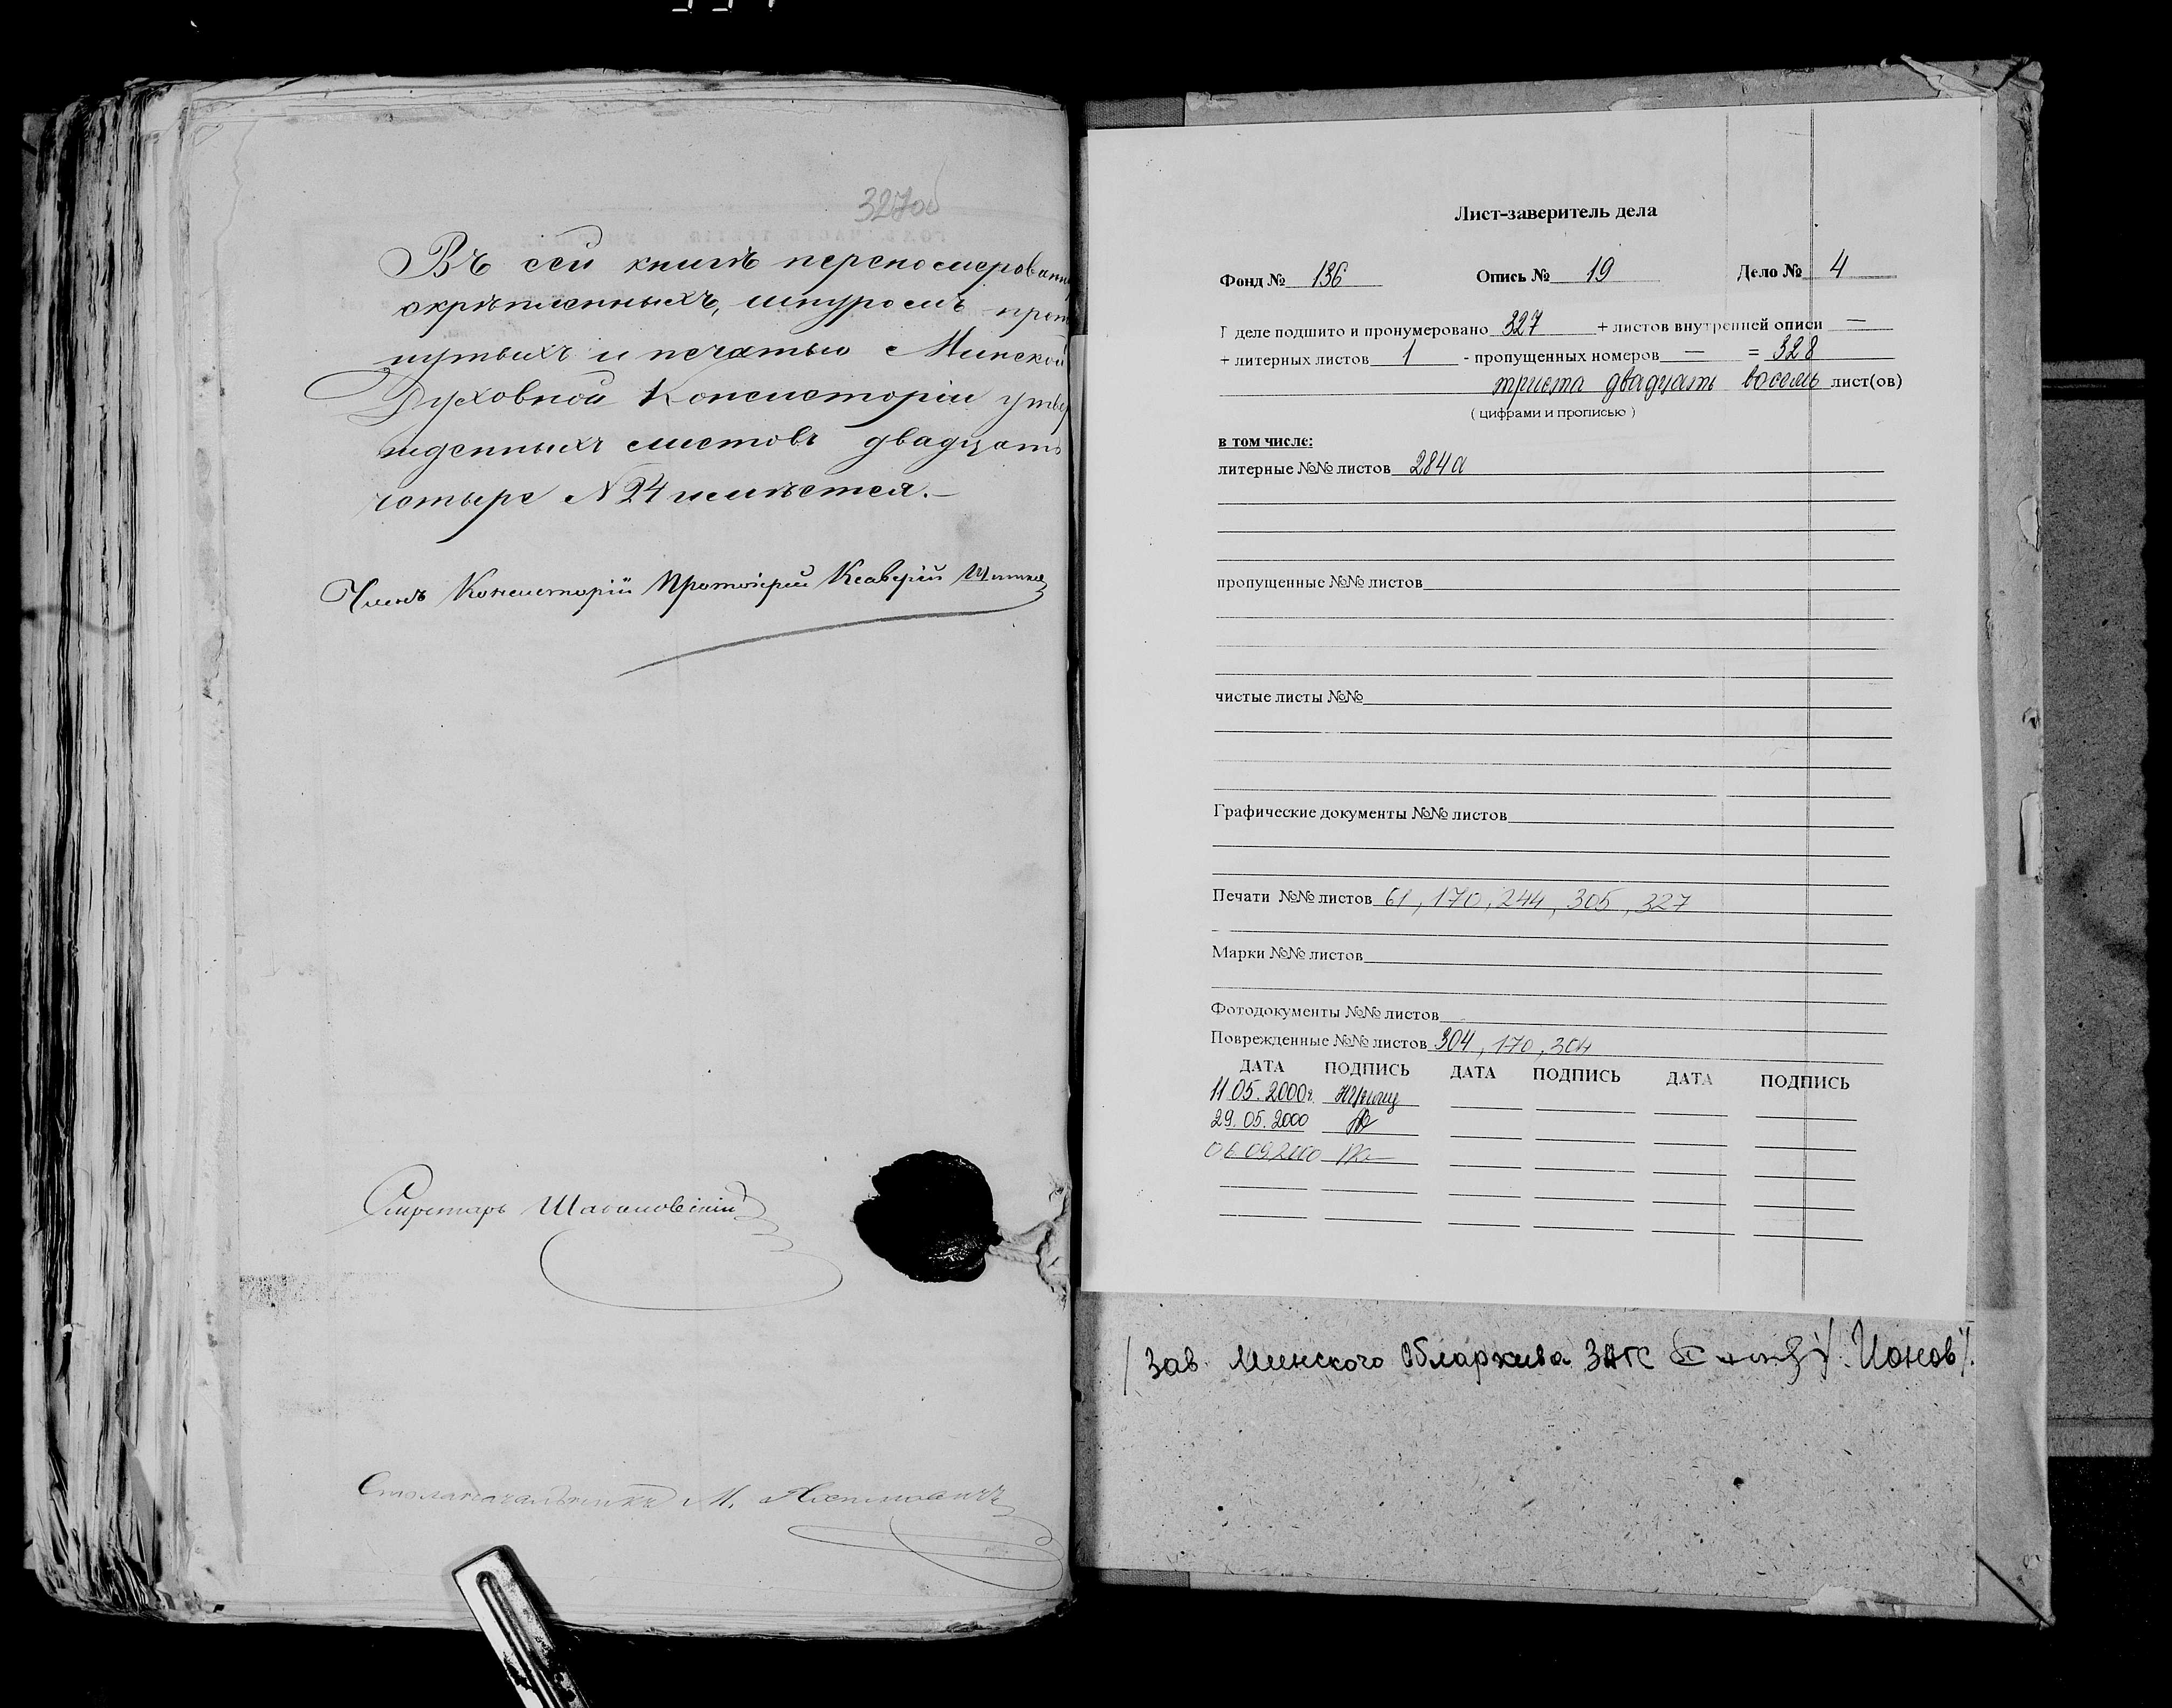 327об
Въ сей книгѣ перено­мерован
скрѣпленныхъ, шнуромъ прот
нутыхъ и печатью Минской
Духовной Консисторіи утвер
жденныхъ листовъ двадцать
четыре N 24 имѣется.—
Членъ Консисторіи Протоіерей Ксаверій
Секретарь
Столоначальникъ М.
Лист-заверитель дела
Фонд № 136 Опись № 19 Дело № 4
деле подшито и пронумеровано 327 + листов внутренней описи —
+ литерных листов 1 - пропущенных номеров — = 328
триста двадцать восемь лист(ов)
( цифрами и прописью )
в том числе:
литерные №№ листов 284а
пропущенные №№ листов
чистые листы №№
Графические документы №№ листов
Печати №№ листов 61, 170, 244, 305, 327
Марки №№ листов
Фотодокументы №№ листов
Поврежденные №№ листов 304, 170, 304
ДАТА ПОДПИСЬ ДАТА ПОДПИСЬ ДАТА ПОДПИСЬ
11.05.2000г.
29.05.2000
06.09.2000
/ Зав. Минского Облархива ЗАГС Ионов /.